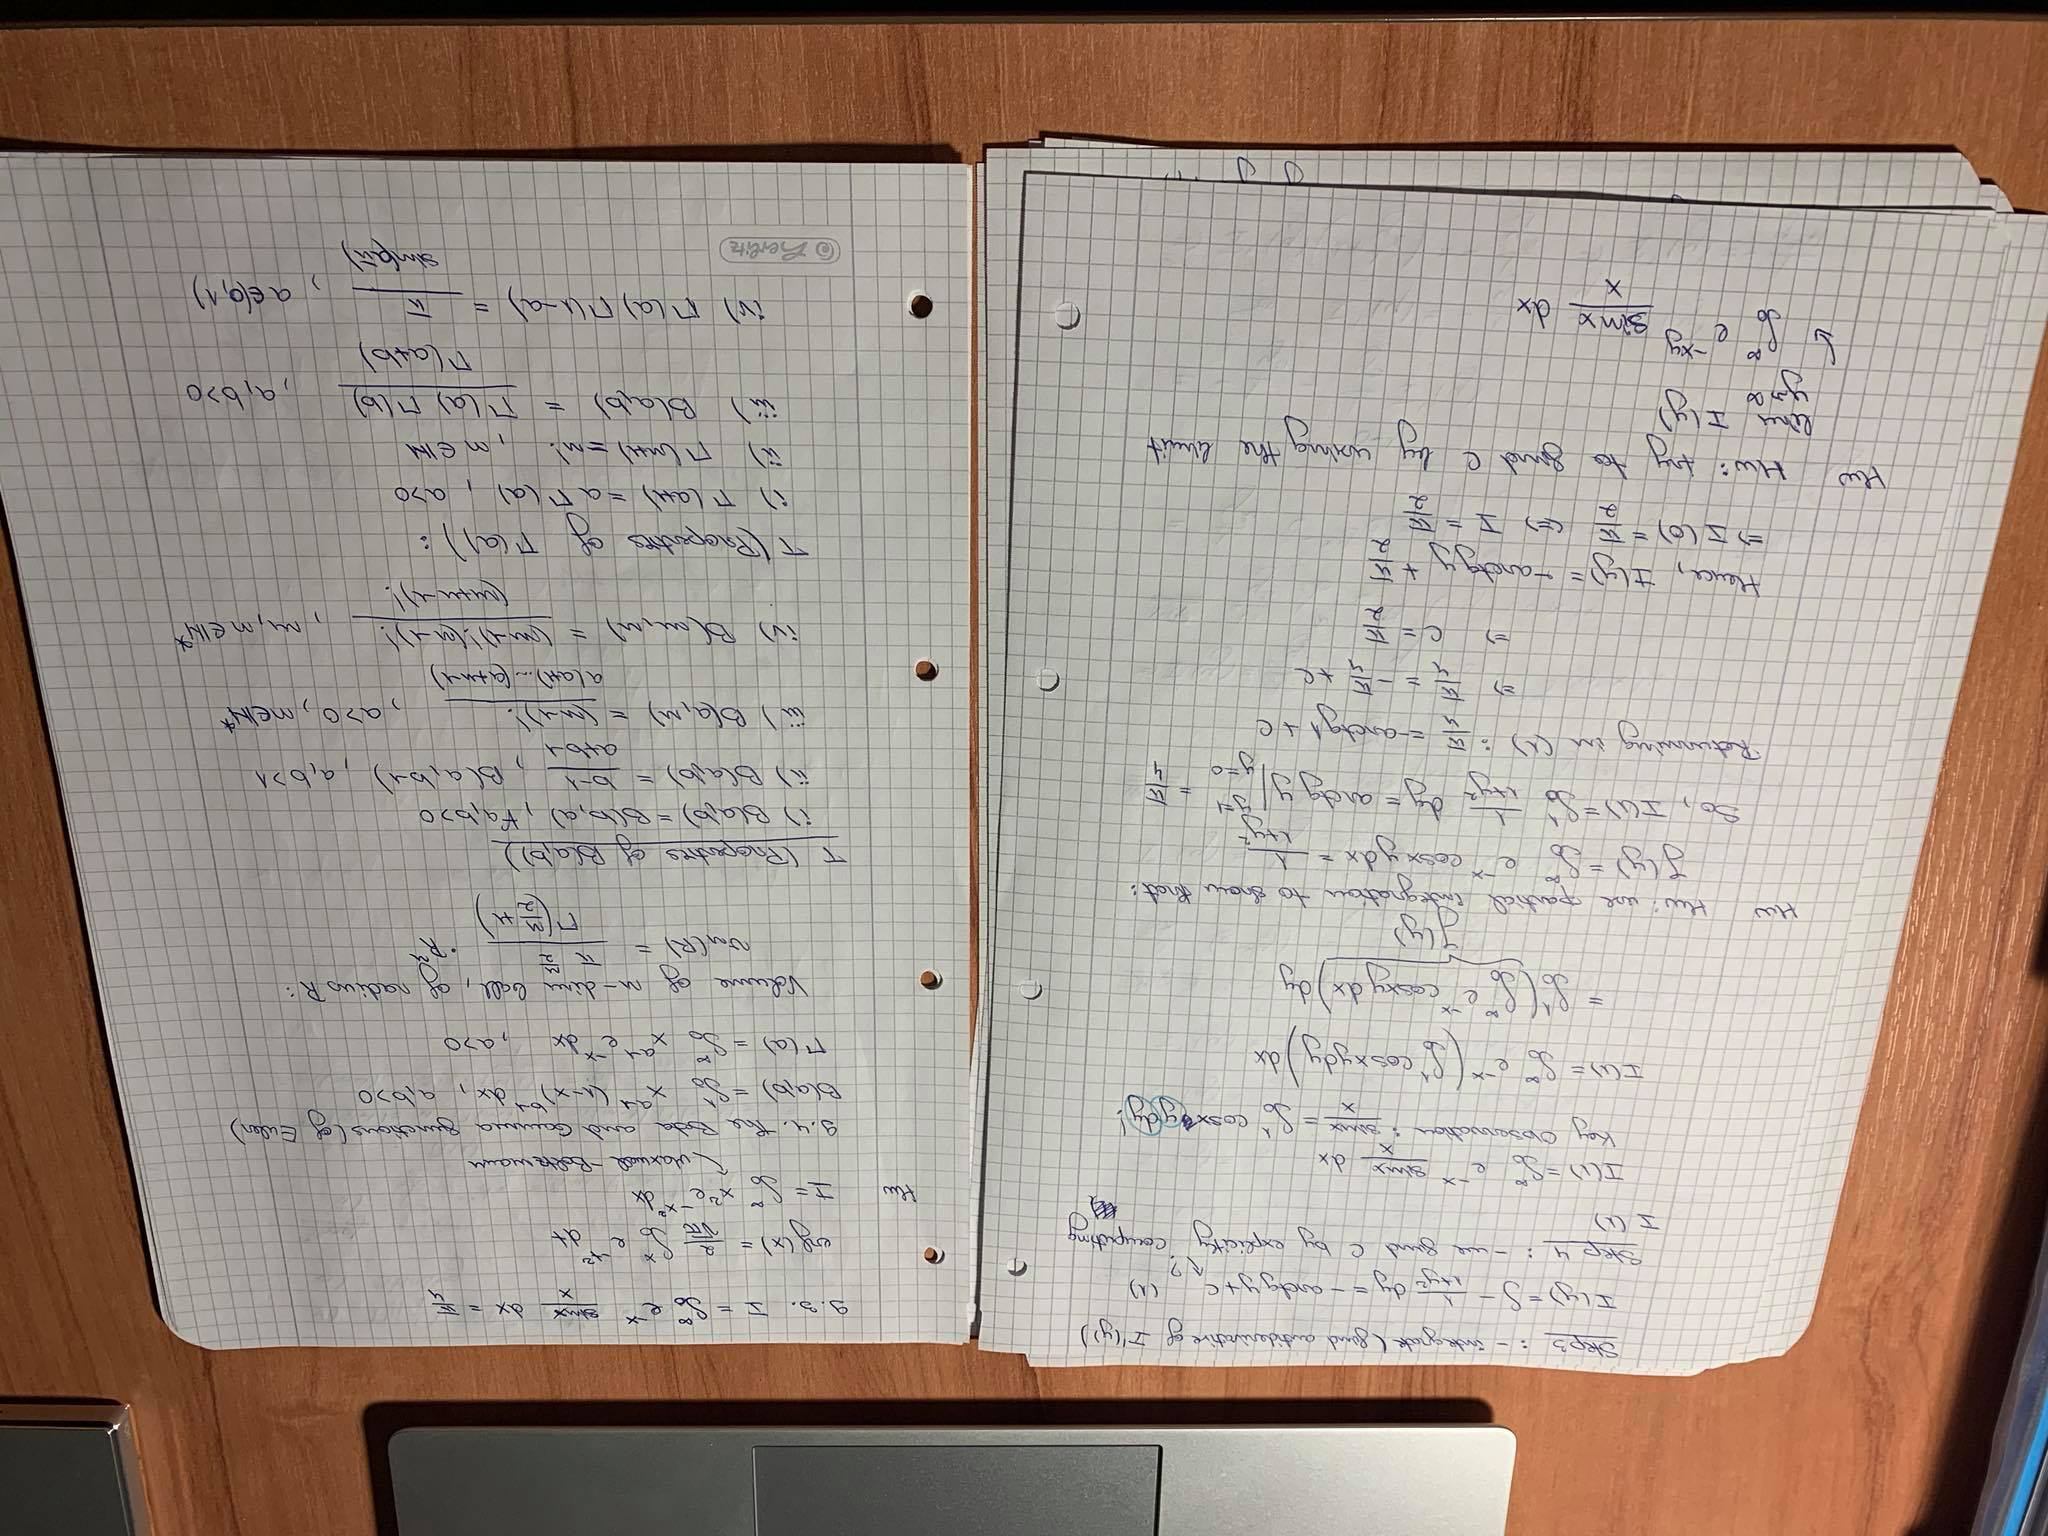 Step 3 : - integrate (find antiderivative of I'(y))
I(y) = ∫ - 1/(1+y²) dy = - arctg y + C (1)
↑?
Step 4 : - we find C by explicitly computing
I(1)
I(1) = ∫₀^∞ e^{-x} sinx/x dx
Key Observation : sinx/x = ∫₀¹ cosxy dy!
I(1) = ∫₀^∞ e^{-x} (∫₀¹ cosxydy) dx
= ∫₀¹ (∫₀^∞ e^{-x} cosxy dx) dy
J(y)
Hw Hw: use partial integration to show that:
J(y) = ∫₀^∞ e^{-x} cosxydx = 1/(1+y²)
So, I(1) = ∫₀¹ 1/(1+y²) dy = arctg y |_{y=0}^{y=1} = π/4
Returning in (1) : π/4 = -arctg1 + C
⇒ π/4 = - π/4 + C
⇒ C = π/2
Hence, I(y) = -arctg y + π/2
⇒ I(0) = π/2 ⇔ I = π/2
Hw Hw: try to find C by using the limit
lim_{y→∞} I(y)
↓ ∫₀^∞ e^{-xy} sinx/x dx
9.3. I = ∫₀^∞ e^{-x} sinx/x dx = π/4
erf(x) = 2/√π ∫₀^x e^{-t²} dt
Hw I = ∫₀^∞ x² e^{-x²} dx
↖ Maxwell-Boltzmann
9.4. The Beta and Gamma functions (of Euler)
B(a,b) = ∫₀¹ x^{a-1} (1-x)^{b-1} dx, a,b>0
Γ(a) = ∫₀^∞ x^{a-1} e^{-x} dx , a>0
Volume of n-dim ball, of radius R:
vn(R) = π^{n/2} / Γ(n/2+1) · Rⁿ
T (Properties of B(a,b))
i) B(a,b) = B(b,a) , ∀a,b>0
ii) B(a,b) = (b-1)/(a+b-1) , B(a,b-1) , a,b>1
iii) B(a,n) = (n-1)! / a(a+1)...(a+n-1) , a>0, n∈ℕ*
iv) B(m,n) = (m-1)!(n-1)! / (m+n-1)! , m,n∈ℕ*
T (Properties of Γ(a)) :
i) Γ(a+1) = a Γ(a) , a>0
ii) Γ(n+1) = n! , n∈ℕ
iii) B(a,b) = Γ(a) Γ(b) / Γ(a+b) , a,b>0
iv) Γ(a) Γ(1-a) = π / sin(aπ) , a∈(0,1)
Herlitz